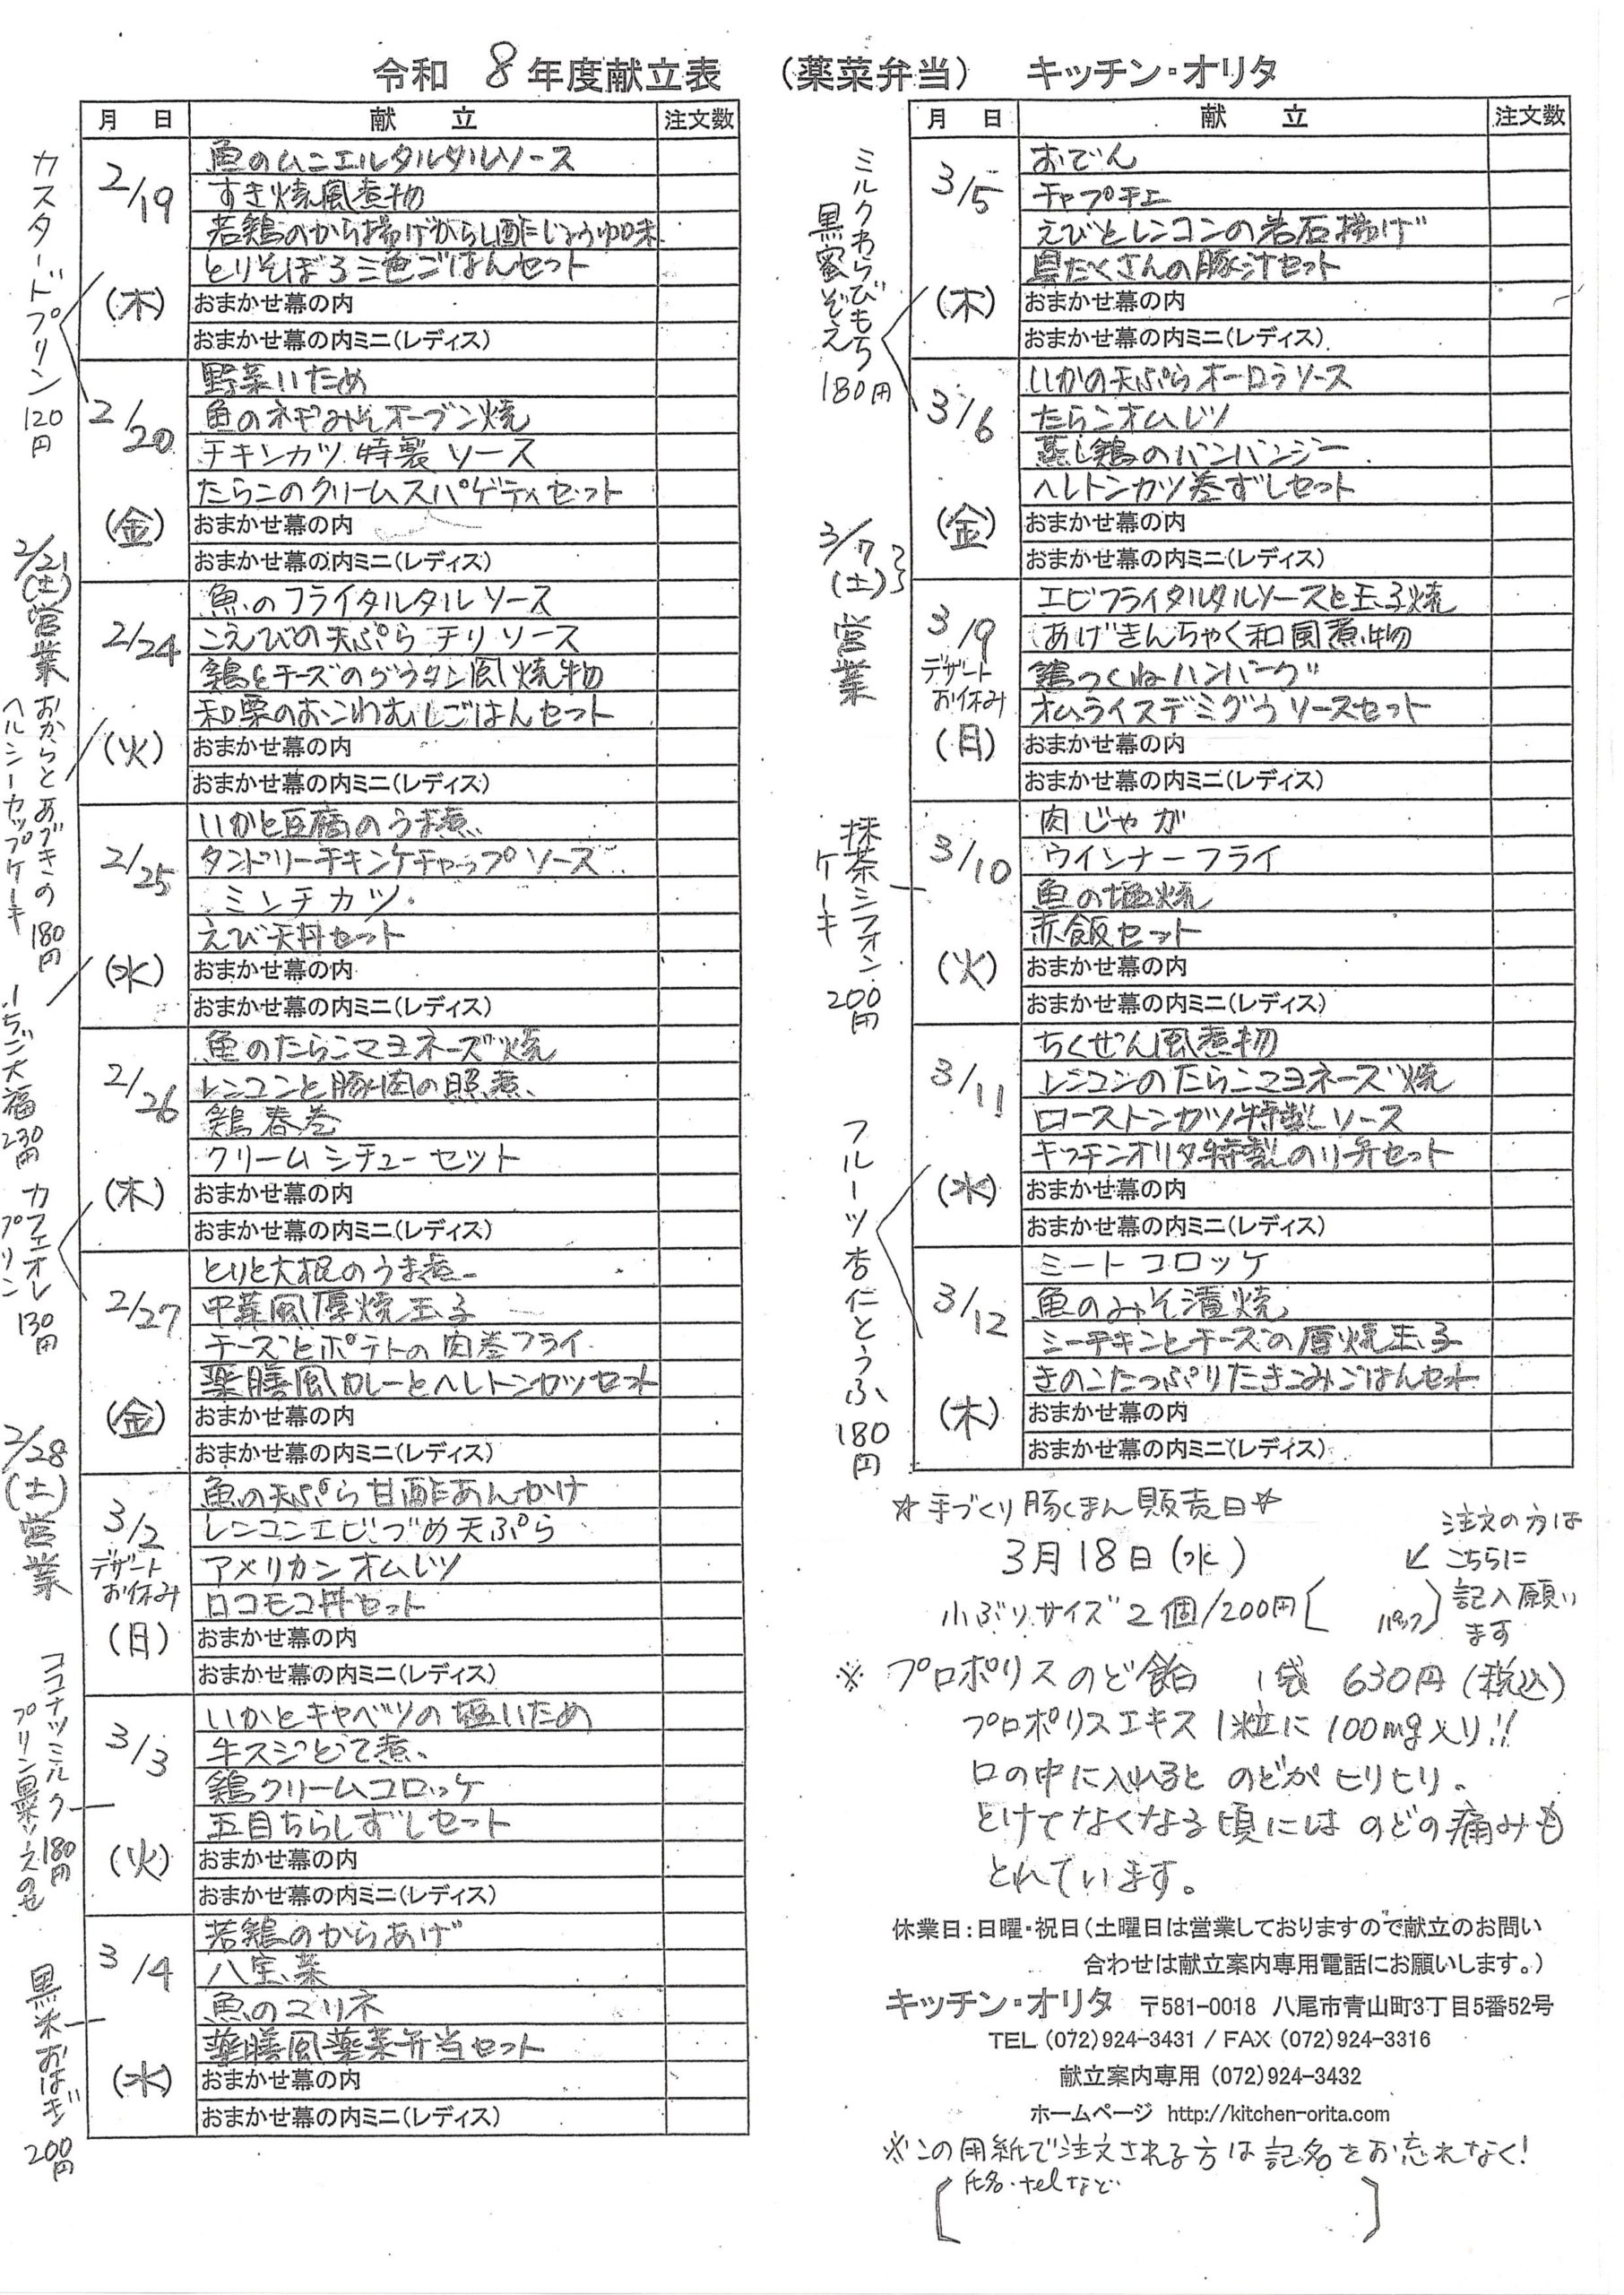 令和 8年度献立表 (薬菜弁当) キッチン・オリタ
月 日 献 立 注文数
2/19
(木)
魚のムニエルタルタルソース
すき焼風煮物
若鶏のから揚げからし酢じょうゆ味
とりそぼろ三色ごはんセット
おまかせ幕の内
おまかせ幕の内ミニ(レディス)
2/20
(金)
野菜いため
魚のネギみそオーブン焼
チキンカツ 特製ソース
たらこのクリームスパゲティセット
おまかせ幕の内
おまかせ幕の内ミニ(レディス)
2/24
(火)
魚のフライタルタルソース
こえびの天ぷら チリソース
鶏とチーズのグラタン風焼物
和栗のおこわむしごはんセット
おまかせ幕の内
おまかせ幕の内ミニ(レディス)
2/25
(水)
いかと豆腐のうま煮
タンドリーチキンケチャップソース
ミンチカツ
えび天丼セット
おまかせ幕の内
おまかせ幕の内ミニ(レディス)
2/26
(木)
魚のたらこマヨネーズ焼
レンコンと豚肉の照煮
鶏春巻
クリームシチューセット
おまかせ幕の内
おまかせ幕の内ミニ(レディス)
2/27
(金)
とりと大根のうま煮
中華風厚焼玉子
チーズとポテトの肉巻フライ
薬膳風カレーとヘレトンカツセット
おまかせ幕の内
おまかせ幕の内ミニ(レディス)
3/2
デザート
お休み
(月)
魚の天ぷら甘酢あんかけ
レンコンエビづめ天ぷら
アメリカンオムレツ
ロコモコ丼セット
おまかせ幕の内
おまかせ幕の内ミニ(レディス)
3/3
(火)
いかとキャベツの塩いため
牛スジどて煮
鶏クリームコロッケ
五目ちらしずしセット
おまかせ幕の内
おまかせ幕の内ミニ(レディス)
3/4
(水)
若鶏のからあげ
八宝菜
魚のマリネ
薬膳風薬菜弁当セット
おまかせ幕の内
おまかせ幕の内ミニ(レディス)
カスタードプリン 120円
2/21(土)営業
おからとあずきの
ヘルシーカップケーキ
180円
いちご大福 230円
カフェオレ
プリン
130円
2/28(土)営業
ココナッツミルク
プリン黒豆そえのせ
180円
黒米おはぎ 200円
月 日 献 立 注文数
3/5
(木)
おでん
チャプチェ
えびとレンコンの岩石揚げ
具たくさんの豚汁セット
おまかせ幕の内
おまかせ幕の内ミニ(レディス)
3/6
(金)
いかの天ぷらオーロラソース
たらこオムレツ
蒸し鶏のバンバンジー
ヘレトンカツ巻ずしセット
おまかせ幕の内
おまかせ幕の内ミニ(レディス)
3/9
デザート
お休み
(月)
エビフライタルタルソースと玉子焼
あげきんちゃく和風煮物
鶏つくねハンバーグ
オムライスデミグラソースセット
おまかせ幕の内
おまかせ幕の内ミニ(レディス)
3/10
(火)
肉じゃが
ウインナーフライ
魚の塩焼
赤飯セット
おまかせ幕の内
おまかせ幕の内ミニ(レディス)
3/11
(水)
ちくぜん風煮物
レンコンのたらこマヨネーズ焼
ローストンカツ特製ソース
キッチンオリタ特製のり弁セット
おまかせ幕の内
おまかせ幕の内ミニ(レディス)
3/12
(木)
ミートコロッケ
魚のみそ漬焼
ミーチキンとチーズの厚焼玉子
きのこたっぷりたきこみごはんセット
おまかせ幕の内
おまかせ幕の内ミニ(レディス)
ミルクわらびもち
黒蜜ぞえ
180円
3/7(土)営業
抹茶シフォン
ケーキ
200円
フルーツ杏仁とうふ 180円
☆手づくり豚まん販売日☆
3月18日(水)
小ぶりサイズ2個/200円[ パック]
注文の方は
↙ こちらに
記入願い
ます
※ プロポリスのど飴 1袋 630円(税込)
プロポリスエキス1粒に100mg入り!!
口の中に入れると のどがヒリヒリ。
とけてなくなる頃には のどの痛みも
とれています。
休業日:日曜・祝日(土曜日は営業しておりますので献立のお問い
合わせは献立案内専用電話にお願いします。)
キッチン・オリタ 〒581-0018 八尾市青山町3丁目5番52号
TEL (072)924-3431 / FAX (072)924-3316
献立案内専用 (072)924-3432
ホームページ http://kitchen-orita.com
※この用紙で注文される方は記名をお忘れなく!
[氏名・telなど ]